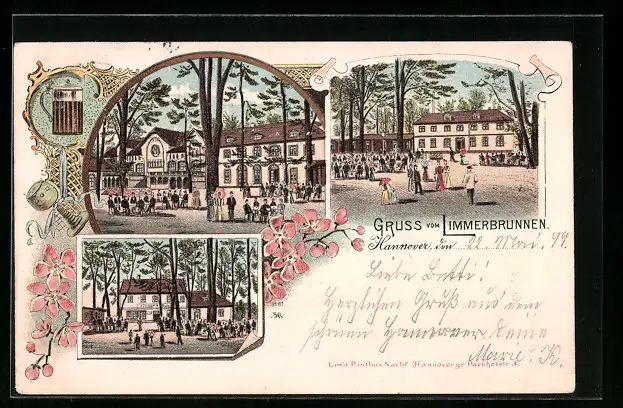 GRUSS VOM LIMMERBRUNNEN.
Hannover, den 22 Mai. 99
Liebe Betti!
Herzlichen Gruß aus dem
schönen Hannover
Marie. K.
Emil Pinthus Nachf. Hannover gr. Packhofstr. 3.